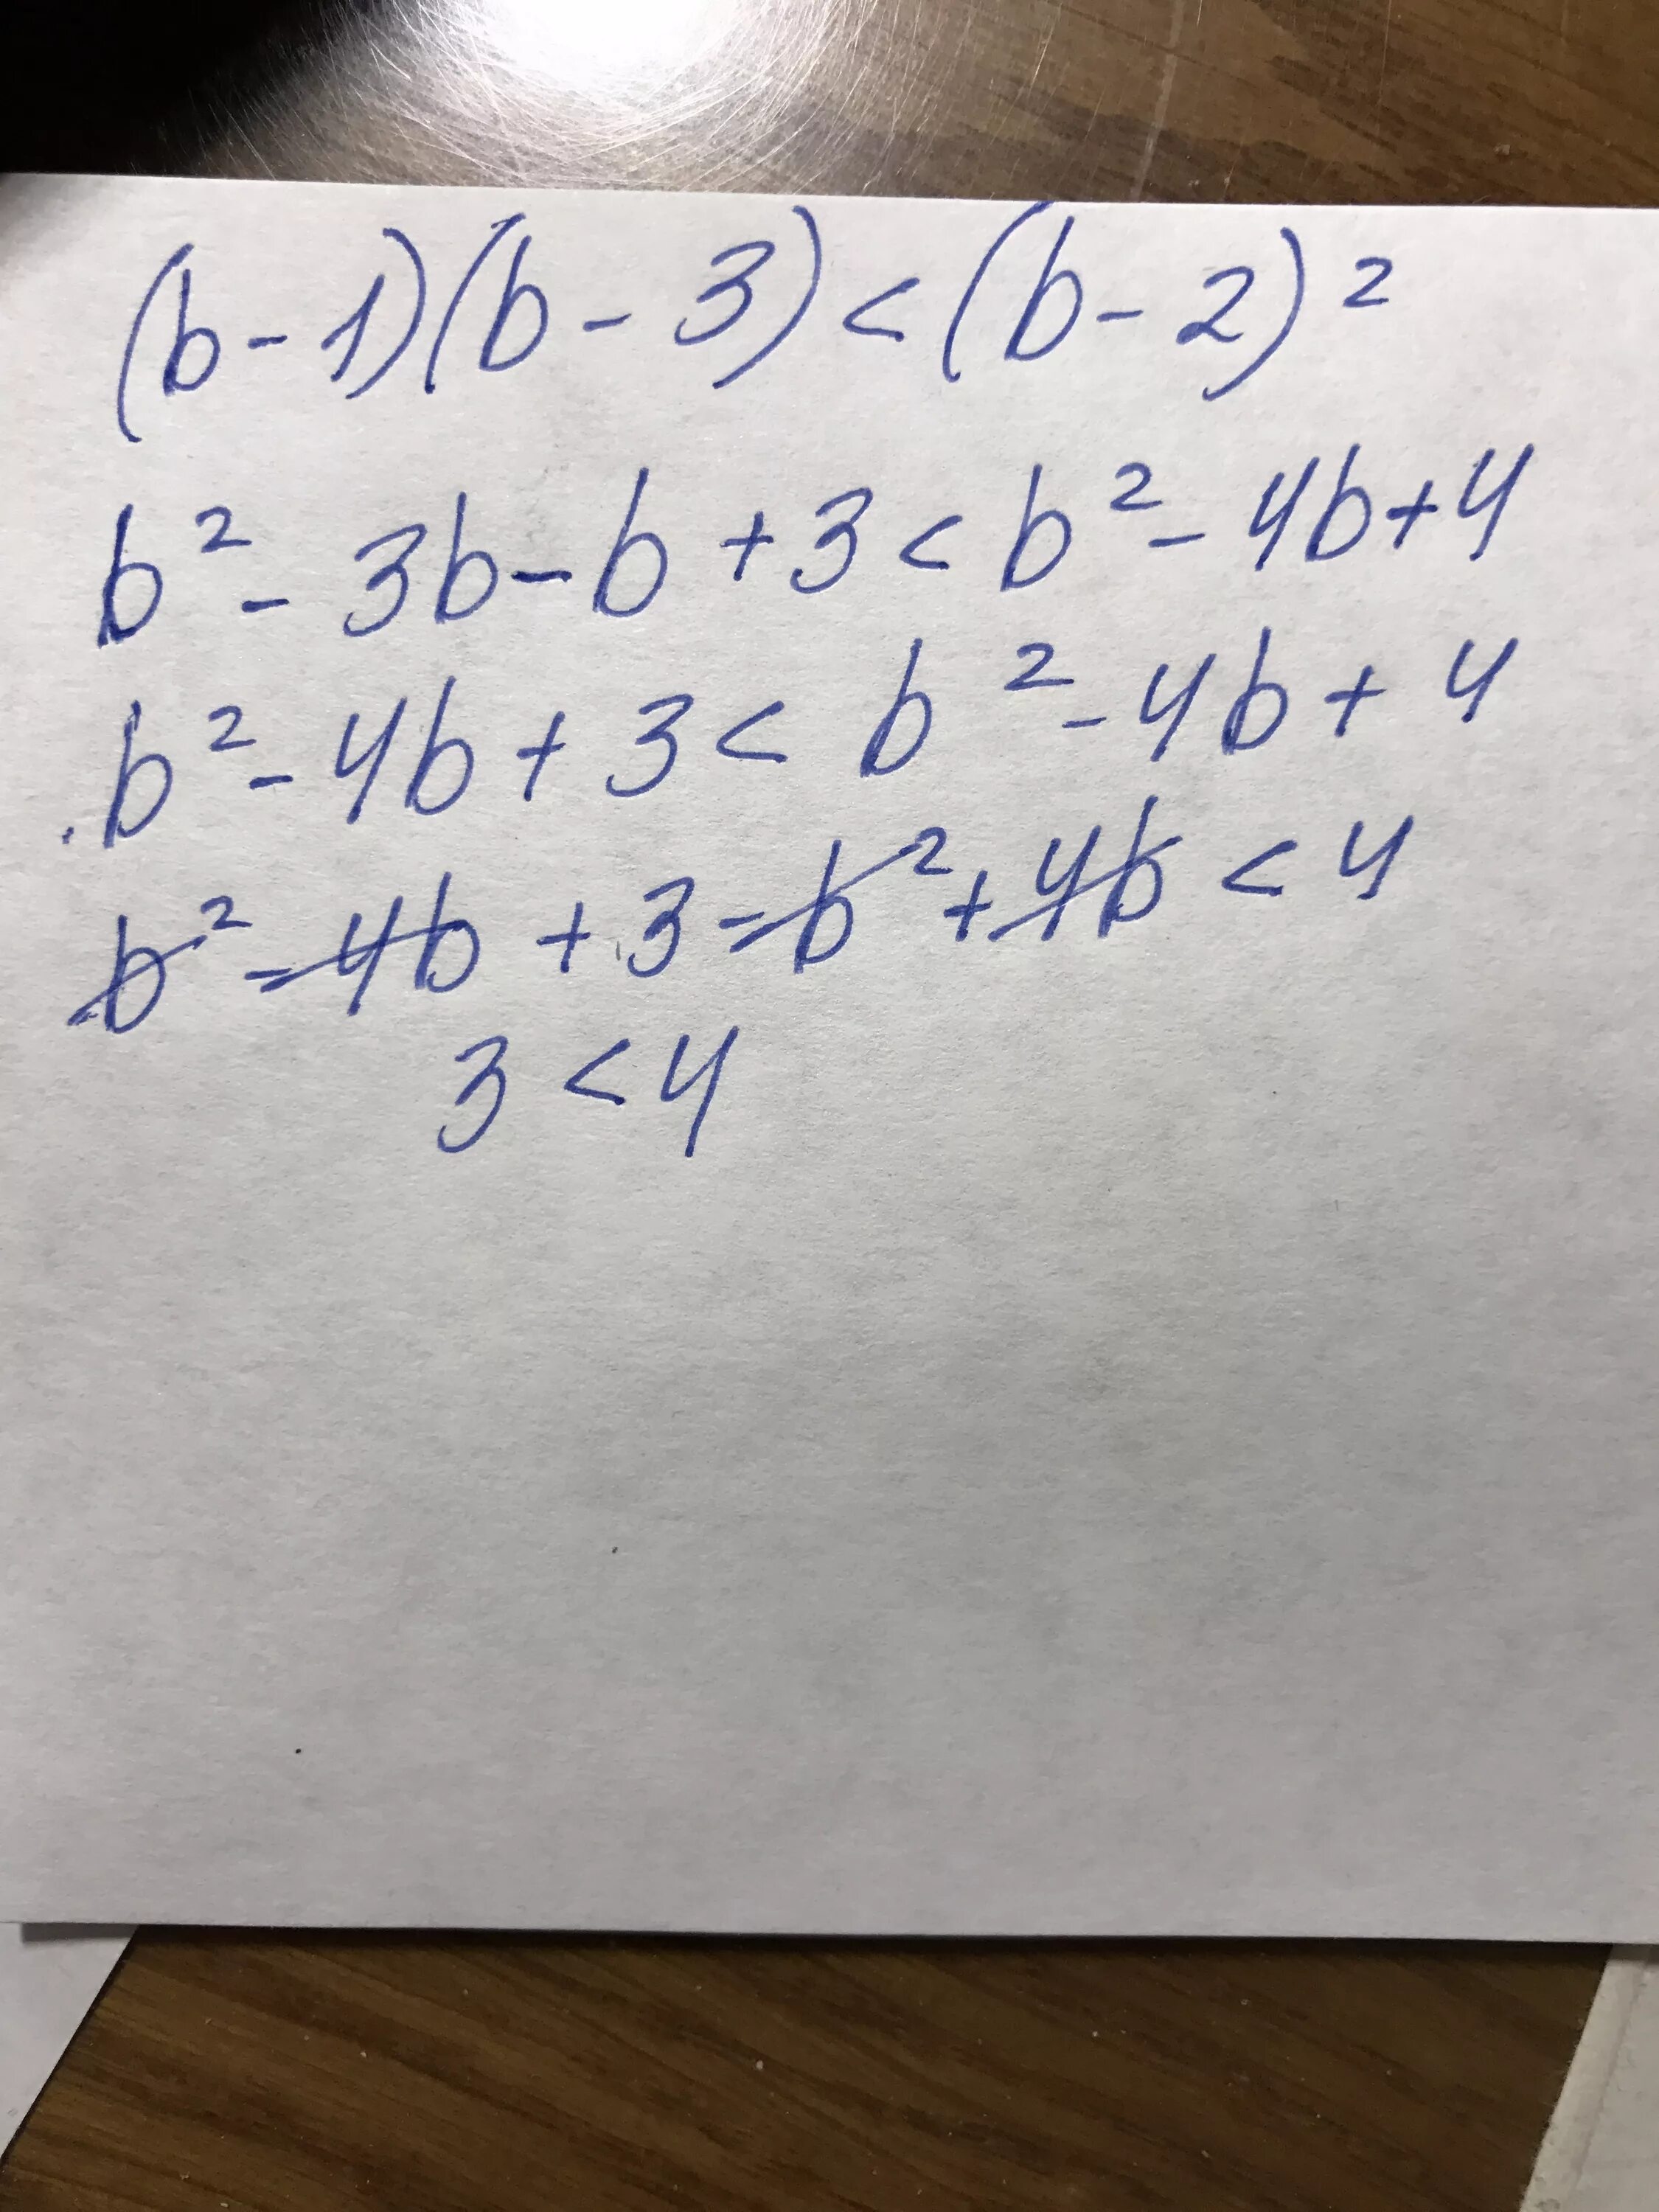 (b-1)(b-3)<(b-2)²
b²-3b-b+3<b²-4b+4
b²-4b+3<b²-4b+4
b²-4b+3-b²+4b<4
3<4